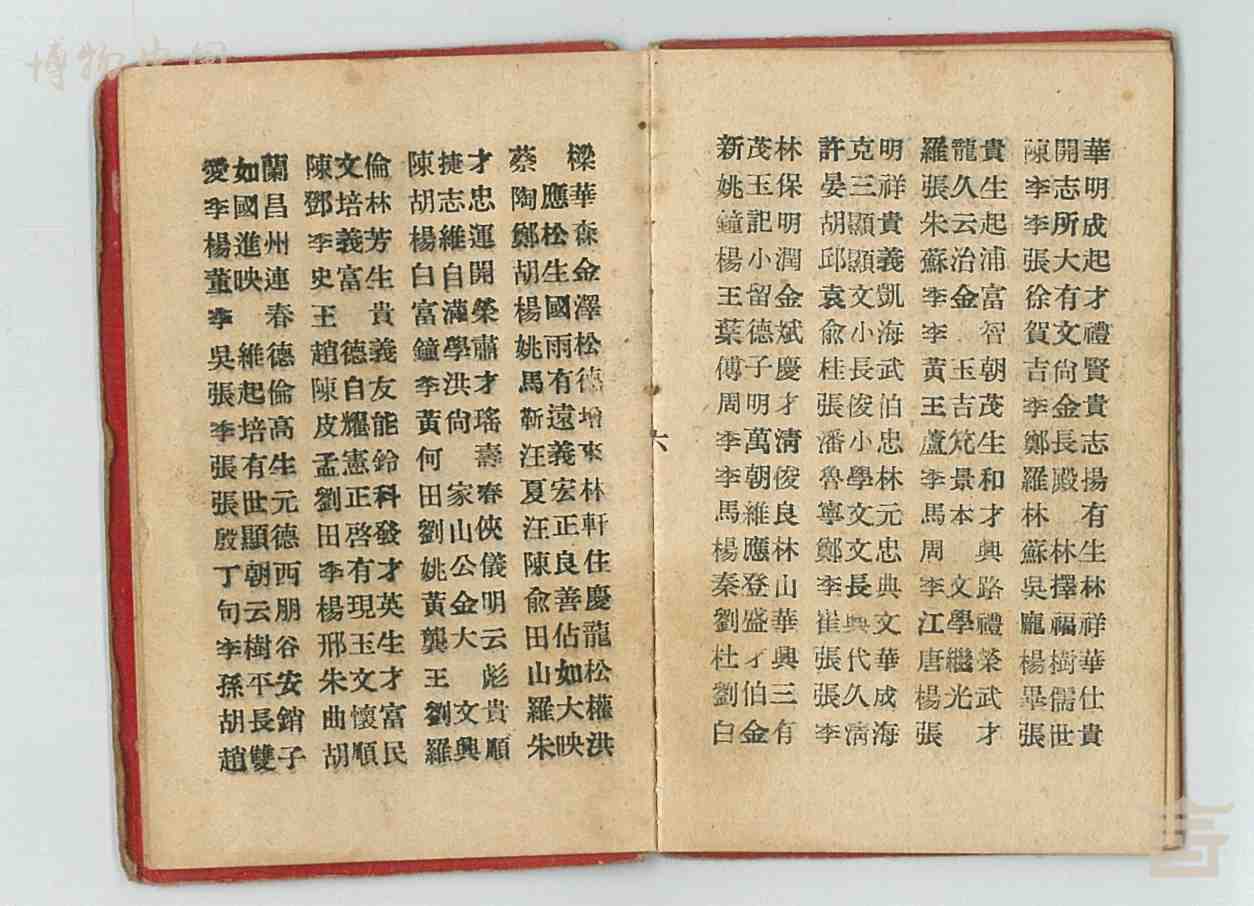 博物中国
愛如蘭 陳文倫 陳捷才 蔡 樑
李國昌 鄧培林 胡志忠 陶應華
楊進州 李義芳 楊維運 鄭松森
董映連 史富生 白自開 胡生金
李 春 王 貴 富澤榮 楊國澤
吳維德 趙德義 鐘學肅 姚雨松
張起倫 陳自友 李洪才 馬有德
李培高 皮耀能 黃尙瑤 靳遠增
張有生 孟憲鈴 何 壽 汪義來
張世元 劉正科 田家春 夏宏林
殷顯德 田啓發 劉山俠 汪正軒
丁朝西 李有才 姚公儀 陳良住
句云朋 楊現英 黃金明 俞善慶
李樹谷 邢玉生 龔大云 田佔龍
孫平安 朱文才 王 彪 山如松
胡長銷 曲懷富 劉文貴 羅大權
趙雙子 胡順民 羅興順 朱映洪
六
新茂林 許克明 羅龍貴 陳開華
姚玉保 晏三祥 張久生 李志明
鐘記明 胡顯貴 朱云起 李所成
楊小潤 邱顯義 蘇治浦 張大起
王留金 袁文凱 李金富 徐有才
葉德斌 俞小海 李 智 賀文禮
傅子慶 桂長武 黃玉朝 吉尙賢
周明才 張俊伯 王吉茂 李金貴
李萬清 潘小忠 盧笂生 鄭長志
李朝俊 魯學林 李景和 羅殿揚
馬維良 寧文元 馬本才 林 有
楊應林 鄭文忠 周 興 蘇林生
秦登山 李長典 李文路 吳擇林
劉盛華 崔興文 江學禮 龐福祥
杜才興 張代華 唐繼榮 楊樹華
劉伯三 張久成 楊光武 畢儒仕
白金有 李淸海 張 才 張世貴